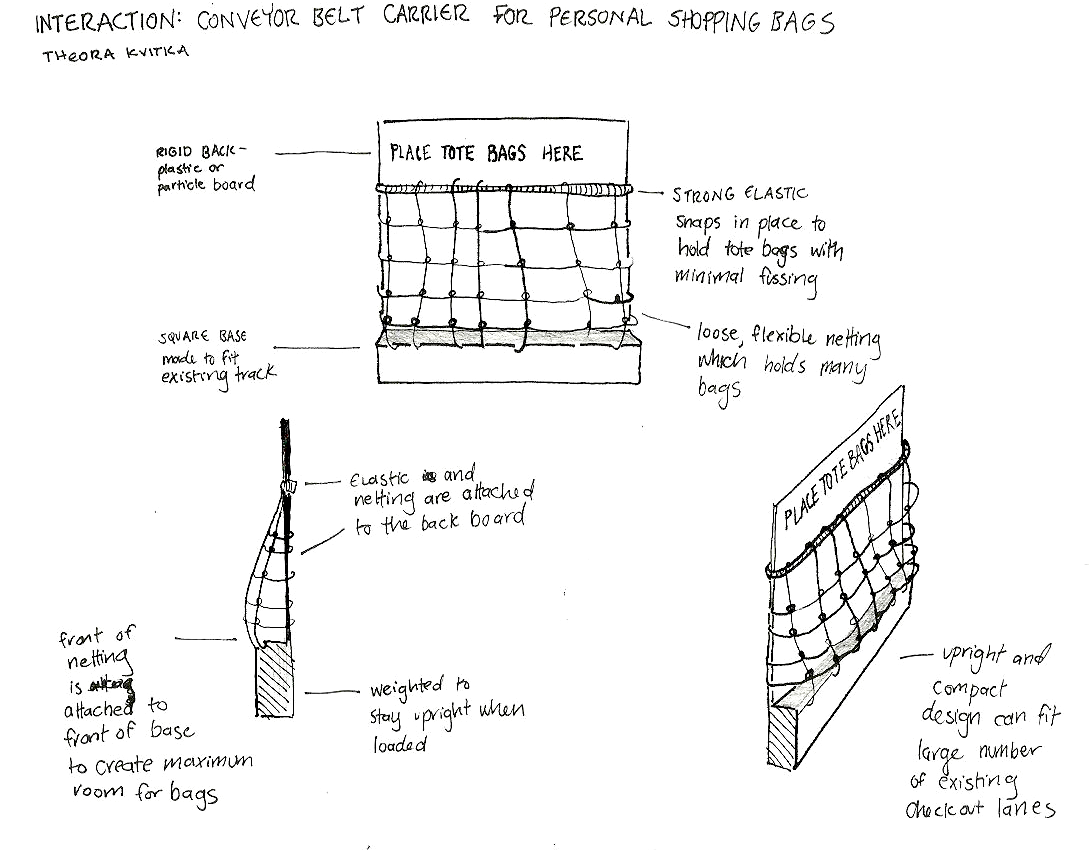 INTERACTION: CONVEYOR BELT CARRIER FOR PERSONAL SHOPPING BAGS
THEORA KVITKA
RIGID BACK-
plastic or
particle board
PLACE TOTE BAGS HERE
STRONG ELASTIC
snaps in place to
hold tote bags with
minimal fussing
SQUARE BASE
made to fit
existing track
loose, flexible netting
which holds many
bags
Elastic and
netting are attached
to the back board
PLACE TOTE BAGS HERE
front of
netting
is
attached to
front of base
to create maximum
room for bags
weighted to
stay upright when
loaded
upright and
compact
design can fit
large number
of existing
checkout lanes